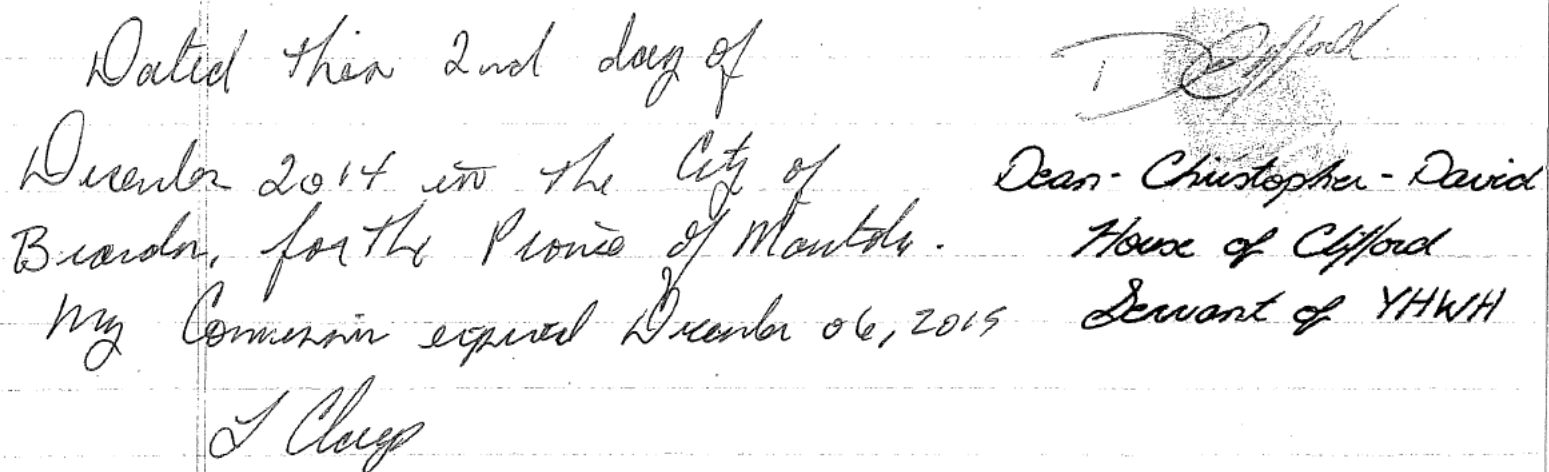 Dated this 2nd day of
December 2014 in the City of
Brandon, for the Province of Manitoba.
My Commission expired December 06, 2015
D Clifford
Dean-Christopher-David
House of Clifford
Servant of YHWH